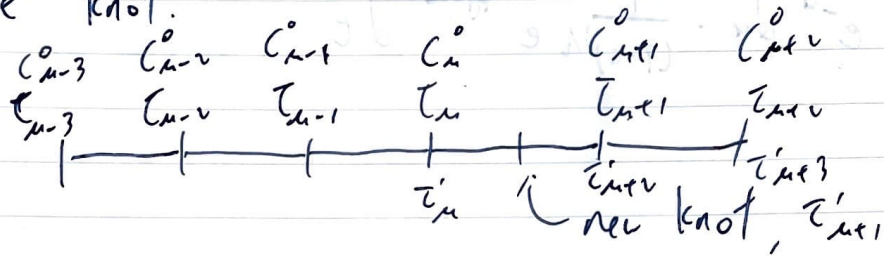 knot.
C⁰μ-3 C⁰μ-2 C⁰μ-1 C⁰μ C⁰μ+1 C⁰μ+2
τμ-3 τμ-2 τμ-1 τμ τμ+1 τμ+2
τ'μ τ'μ+2 τ'μ+3
new knot, τ'μ+1